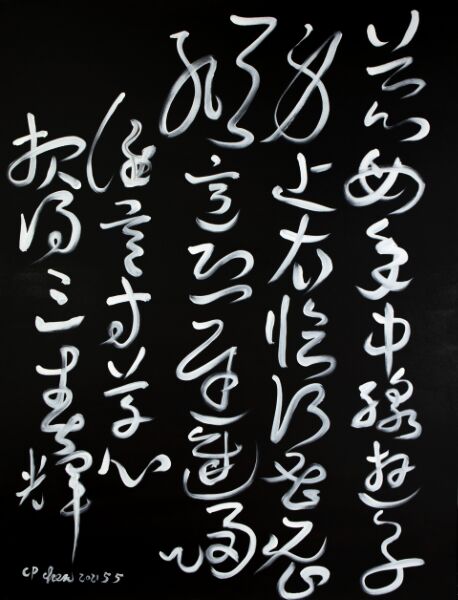 慈母手中線遊子
身上衣臨行密密
縫意恐遲遲歸
誰言寸草心
報得三春輝
CP Chan 2021 5 5